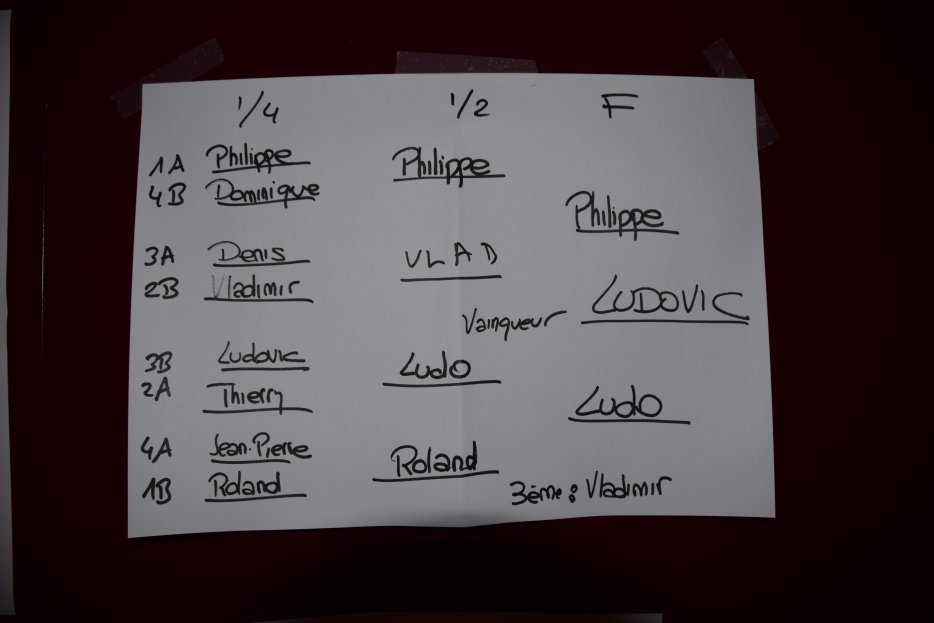 1/4 1/2 F
1A Philippe Philippe
4B Dominique
Philippe
3A Denis VLAD
2B Vladimir
Vainqueur LUDOVIC
3B Ludovic Ludo
2A Thierry
Ludo
4A Jean-Pierre Roland
1B Roland
3ème : Vladimir